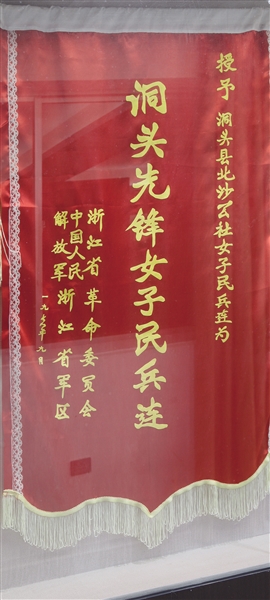 授予 洞头县北沙公社女子民兵连为
洞头先锋女子民兵连
浙江省革命委员会
中国人民
解放军浙江省军区